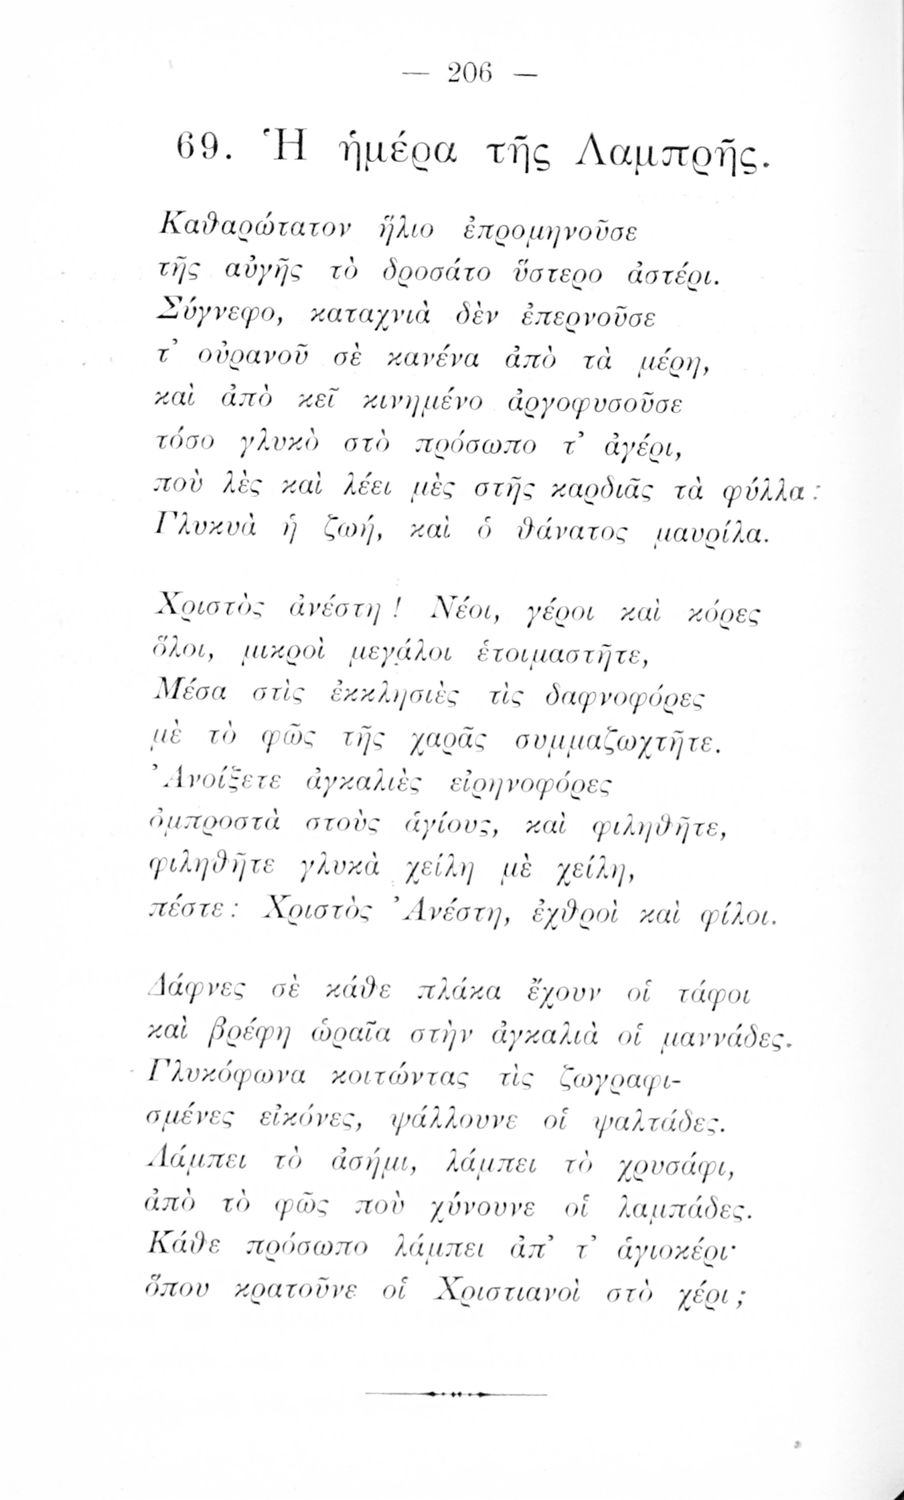 — 206 —
69. Ἡ ἡμέρα τῆς Λαμπρῆς.
Καθαρώτατον ἥλιο ἐπρομηνοῦσε
τῆς αὐγῆς τὸ δροσάτο ὕστερο ἀστέρι.
Σύγνεφο, καταχνιὰ δὲν ἐπερνοῦσε
τ' οὐρανοῦ σὲ κανένα ἀπὸ τὰ μέρη,
καὶ ἀπὸ κεῖ κινημένο ἀργοφυσοῦσε
τόσο γλυκὸ στὸ πρόσωπο τ' ἀγέρι,
ποὺ λὲς καὶ λέει μὲς στῆς καρδιᾶς τὰ φύλλα :
Γλυκυὰ ἡ ζωή, καὶ ὁ θάνατος μαυρίλα.
Χριστὸς ἀνέστη ! Νέοι, γέροι καὶ κόρες
ὅλοι, μικροὶ μεγάλοι ἑτοιμαστῆτε,
Μέσα στὶς ἐκκλησιὲς τὶς δαφνοφόρες
μὲ τὸ φῶς τῆς χαρᾶς συμμαζωχτῆτε.
Ἀνοίξετε ἀγκαλιὲς εἰρηνοφόρες
ὀμπροστὰ στοὺς ἁγίους, καὶ φιληθῆτε,
φιληθῆτε γλυκὰ χείλη μὲ χείλη,
πέστε : Χριστὸς Ἀνέστη, ἐχθροὶ καὶ φίλοι.
Δάφνες σὲ κάθε πλάκα ἔχουν οἱ τάφοι
καὶ βρέφη ὡραῖα στὴν ἀγκαλιὰ οἱ μαννάδες.
Γλυκόφωνα κοιτώντας τὶς ζωγραφι-
σμένες εἰκόνες, ψάλλουνε οἱ ψαλτάδες.
Λάμπει τὸ ἀσήμι, λάμπει τὸ χρυσάφι,
ἀπὸ τὸ φῶς ποὺ χύνουνε οἱ λαμπάδες.
Κάθε πρόσωπο λάμπει ἀπ' τ' ἁγιοκέρι·
ὅπου κρατοῦνε οἱ Χριστιανοὶ στὸ χέρι ;